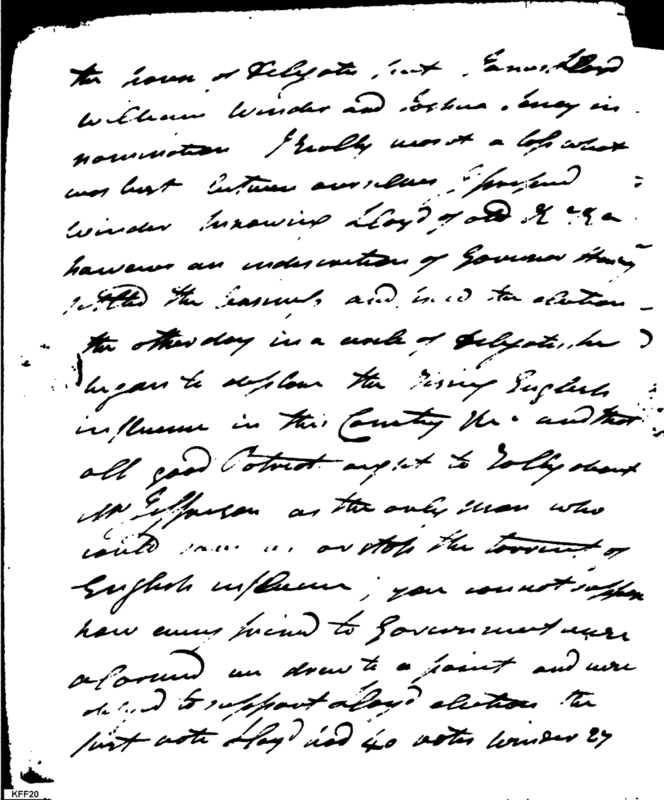 the house of Delegates put James Lloyd
William Winder and Joshua Seney in
nomination I really was at a loss what
was best between ourselves I prefered
Winder knowing Lloyd of old &c &c a
however an indiscretion of Governor Henry
settled the business and fixed the election
the other day in a circle of Delegates, he
began to deplore the rising English
influence in this Country &c and that
all good Patriots ought to Rally about
Mr Jefferson as the only man who
could save us or stop the torrent of
English influence, you cannot suppose
how every friend to Government were
alarmed we drew to a point and were
obliged to support Lloyds election the
first vote Lloyd had 40 votes Winder 27
KFF20